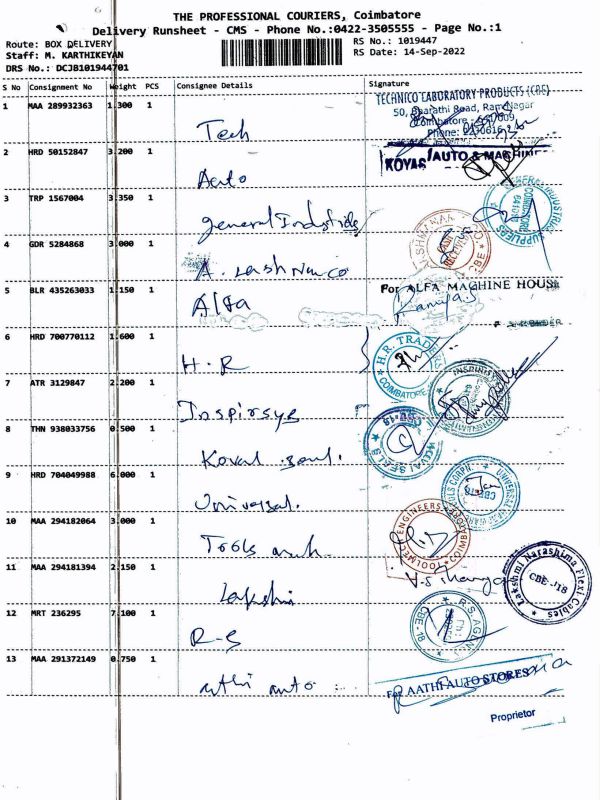 THE PROFESSIONAL COURIERS, Coimbatore
Delivery Runsheet - CMS - Phone No.:0422-3505555 - Page No.:1
Route: BOX DELIVERY
RS No.: 1019447
Staff: M. KARTHIKEYAN
RS Date: 14-Sep-2022
DRS No.: DCJB101944701
S No Consignment No Weight PCS Consignee Details Signature
1 MAA 289932363 1.300 1 Tech
TECHNICO LABORATORY PRODUCTS (CBE)
50, Bharathi Road, Ram Nagar
Coimbatore
Phone:
2 HRD 50152847 3.200 1 Auto
KOVAS AUTO & MACHINE
3 TRP 1567004 3.350 1 general Industries
INDUSTRIAL SUPPLIERS
4 GDR 5284868 3.000 1 A. Lash
5 BLR 435263033 1.150 1 Alfa
For ALFA MACHINE HOUSE
6 HRD 700770112 1.600 1 H.R
H.R. TRADERS
COIMBATORE
7 ATR 3129847 2.200 1 Inspirsys
8 THN 938033756 0.500 1 Koval seal.
KOVAI SEALS
9 HRD 704049988 6.000 1 Universal.
CBE-18
10 MAA 294182064 3.000 1 Tools
TOOLMECH ENGINEERS
11 MAA 294181394 2.150 1 Lakshmi
Lakshmi Narashima Flexi Cables
CBE-J18
12 MRT 236295 7.100 1 R-S
CBE-18
13 MAA 291372149 0.750 1 athi auto
For AATHI AUTO STORES
Proprietor